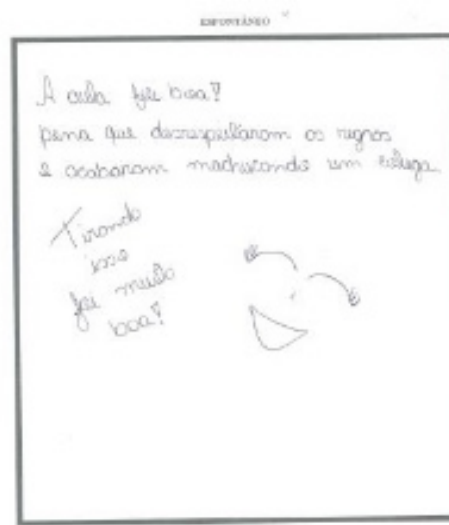 ESPONTÂNEO
A aula foi boa!
pena que desrespeitaram as regras
e acabaram machucando um colega
Tirando
isso
foi muito
boa!